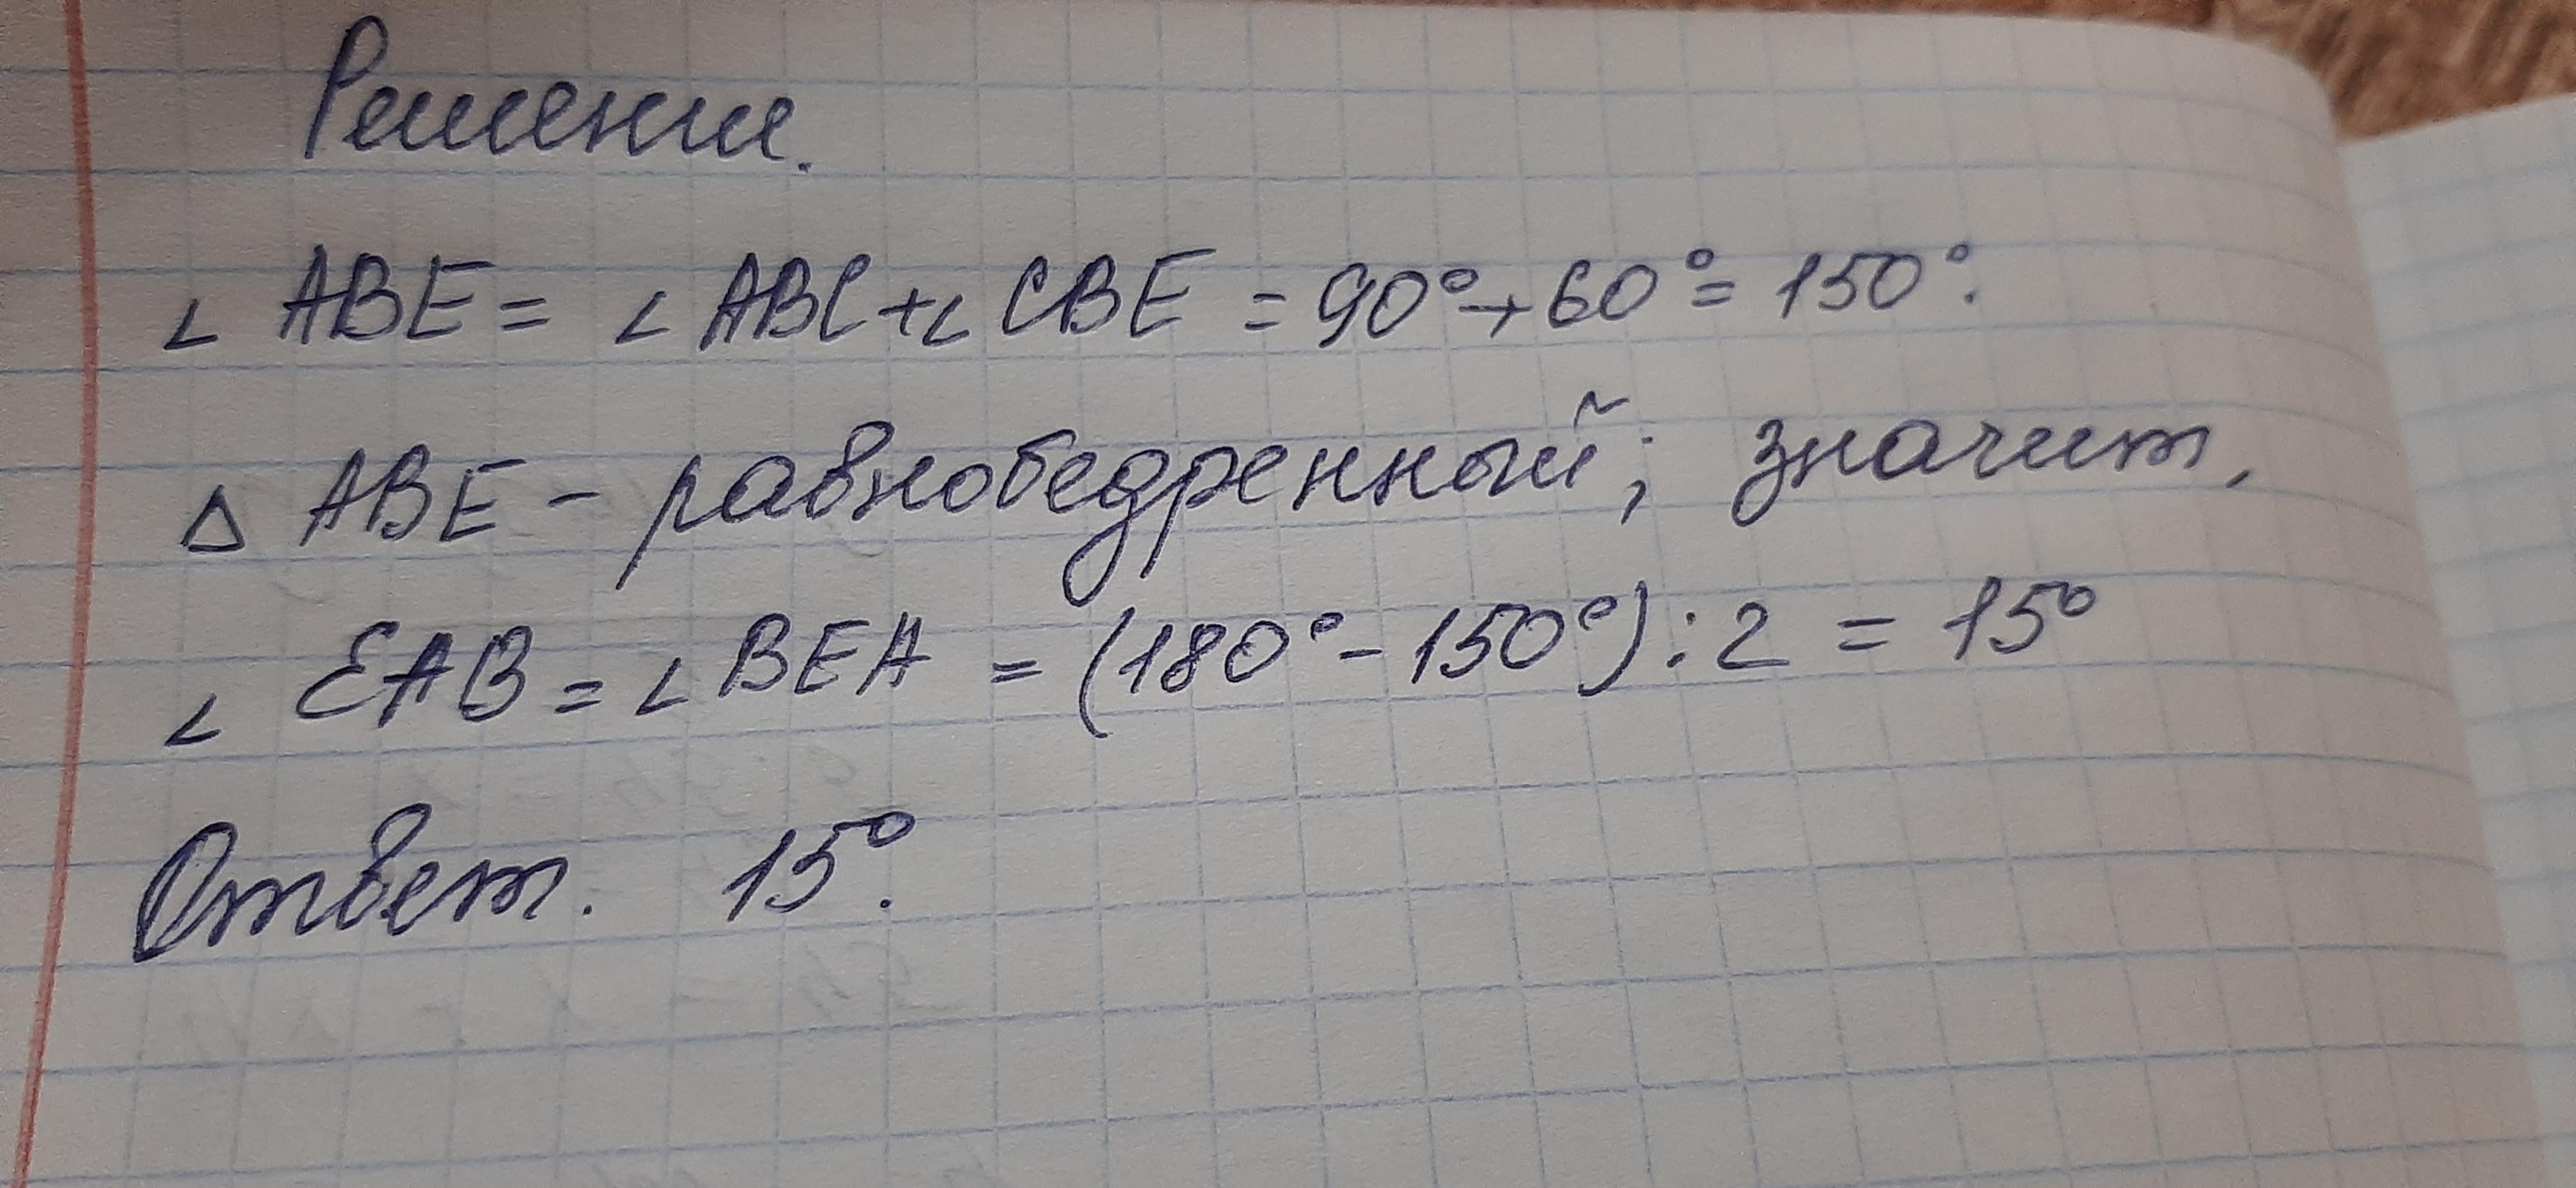 Решение.
∠ ABE = ∠ ABC + ∠ CBE = 90° + 60° = 150°.
Δ ABE - равнобедренный; значит,
∠ EAB = ∠ BEA = (180° - 150°) : 2 = 15°
Ответ. 15°.